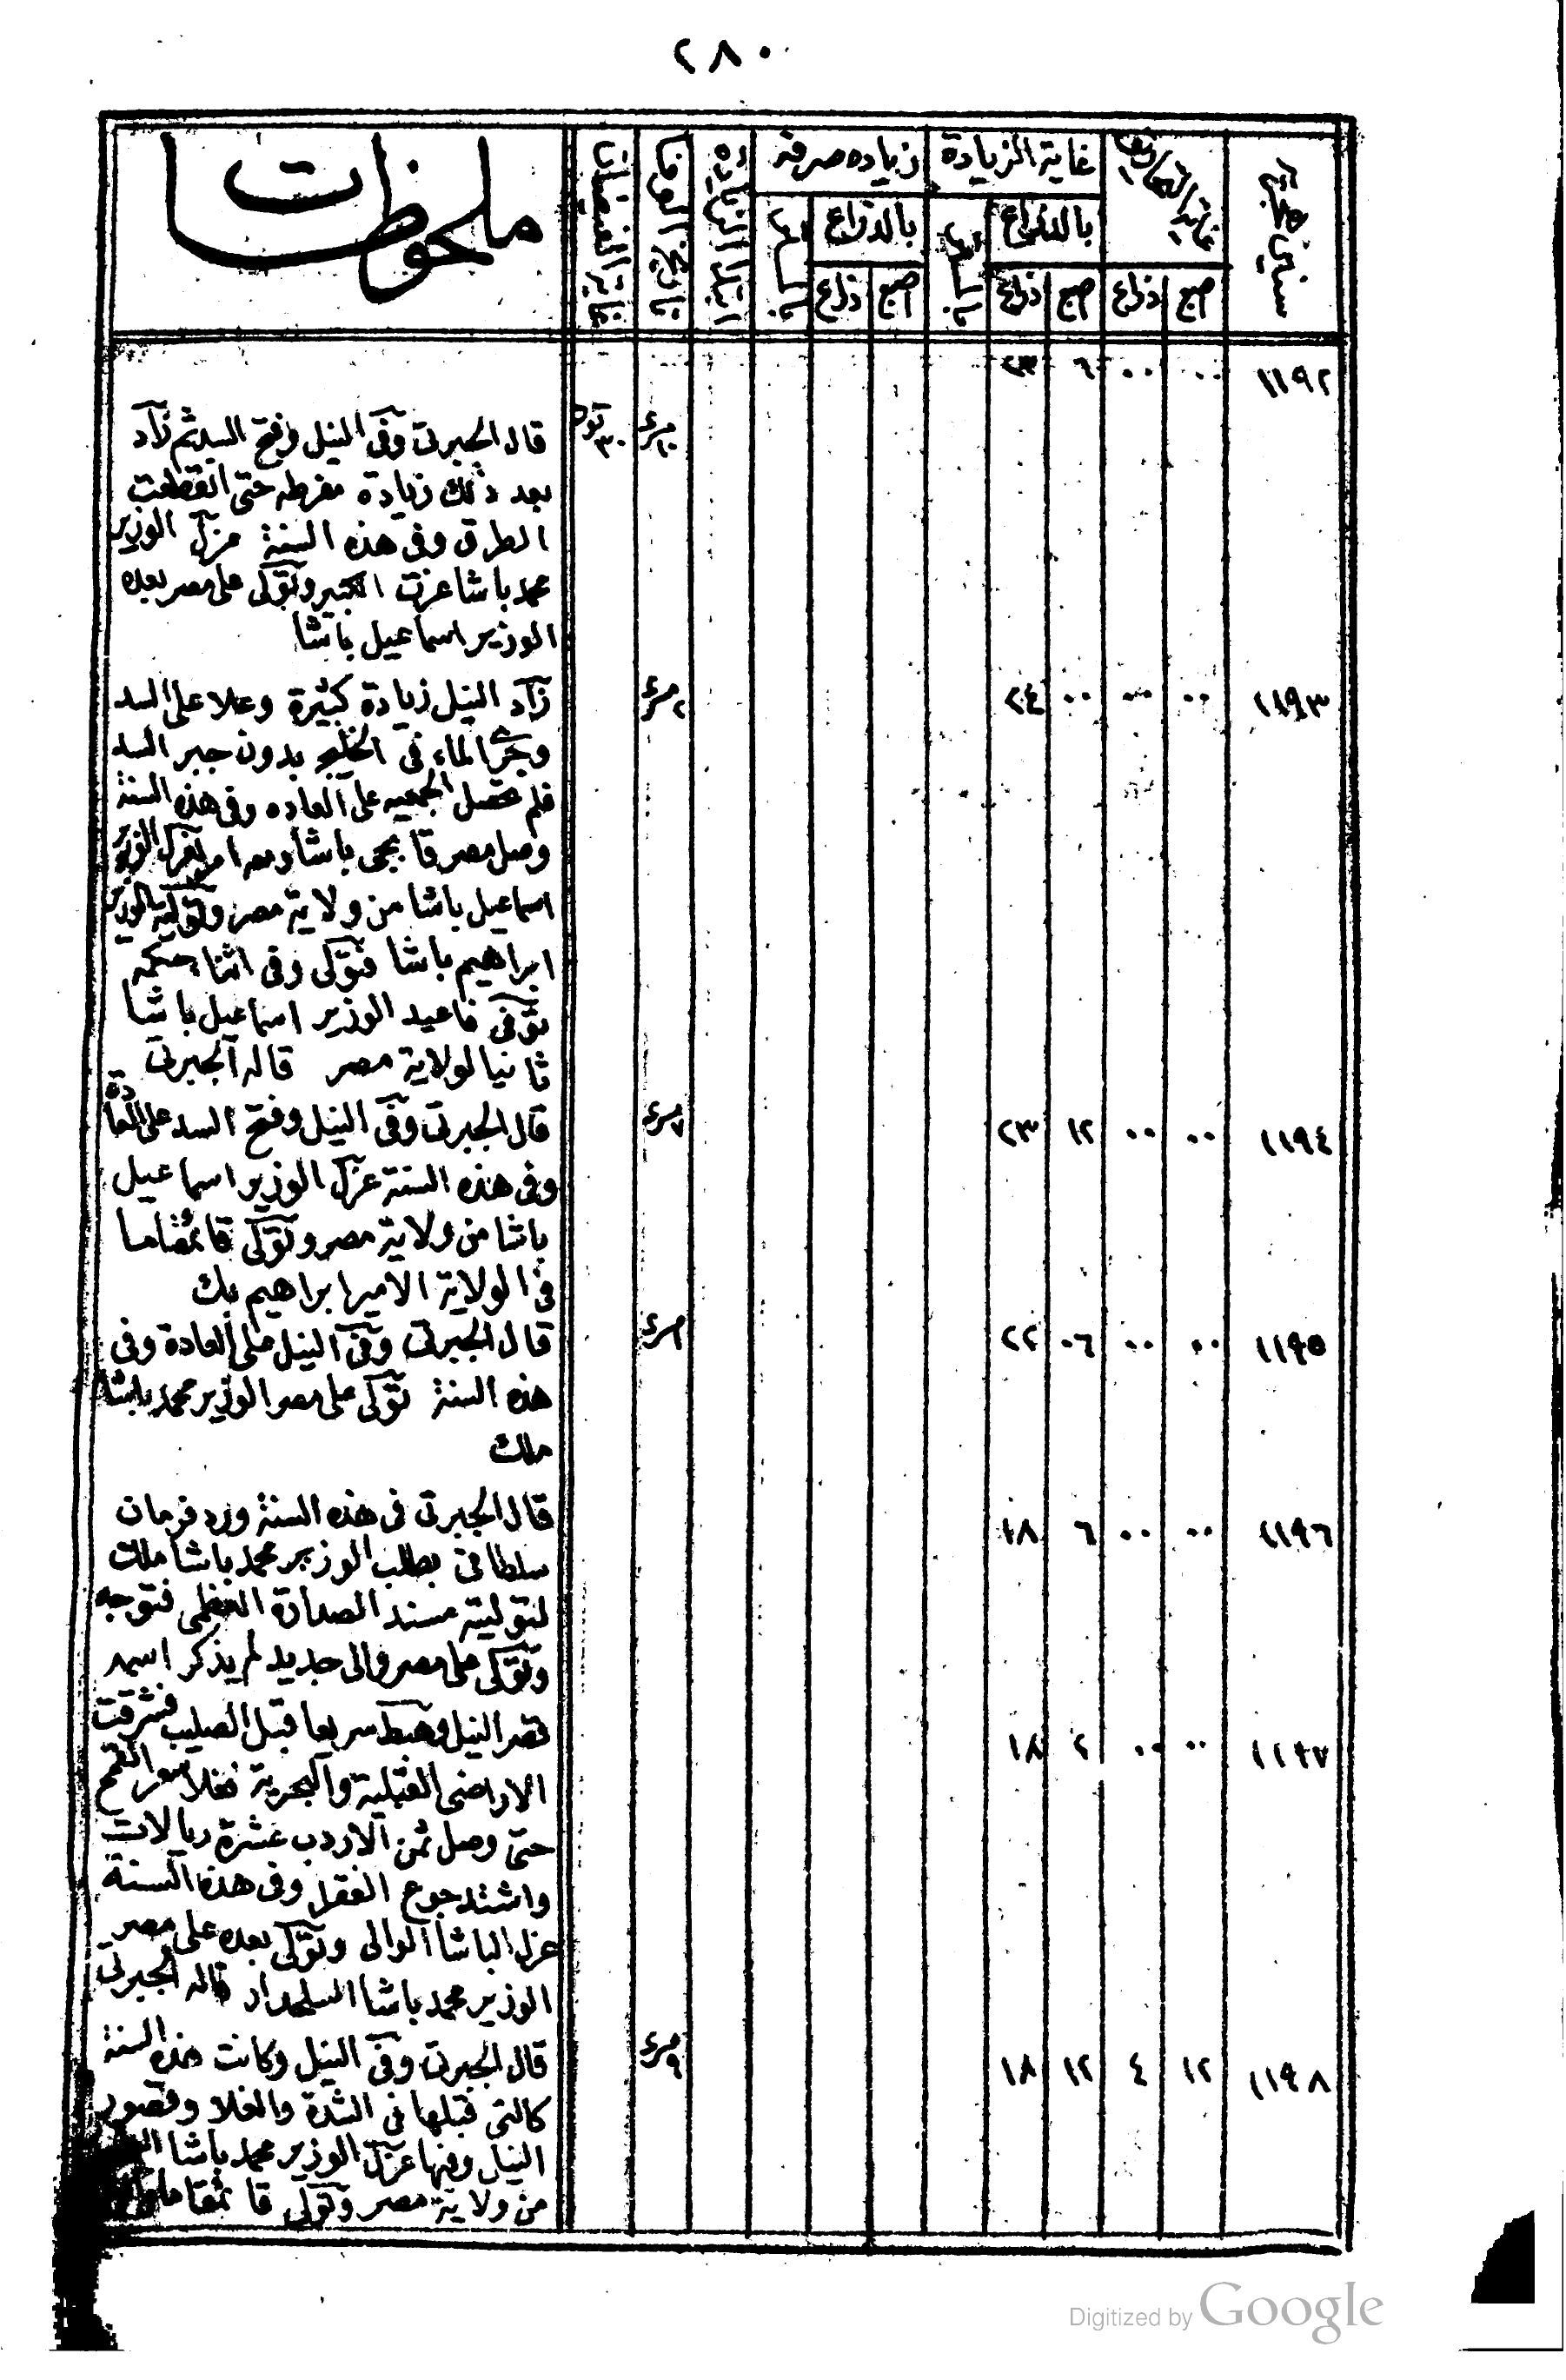 ٢٨٠
سنين هجرية
نهاية التحاريق
غاية الزيادة
زيادة صرفة
ابتداء الزيادة
تاريخ الوفاء
غاية الفيضان
ملحوظات
بالذراع
بالذراع
اصبع ذراع اصبع ذراع اصبع ذراع
١١٩٢ ٠٠ ٠٠ ٦ ٢٣
١٠ مسرى ٣٠ توت قال الجبرتى وفى النيل وفتح السد ثم زاد
بعد ذلك زيادة مفرطه حتى انقطعت
الطرق وفى هذه السنة عزل الوزير
محمد باشا عزت الكبير وتولى على مصر بعده
الوزير اسماعيل باشا
١١٩٣ ٠٠ ٠٠ ٠٠ ٢٤ ٢ مسرى زاد النيل زيادة كثيرة وعلا على السد
وجرى الماء فى الخليج بدون جبر السد
فلم تحصل الجمعيه على العاده وفى هذه السنة
وصل مصر قابجى باشا ومعه امر بعزل الوزير
اسماعيل باشا من ولاية مصر وتولية الوزير
ابراهيم باشا فتولى وفى اثناء حكمه
توفى فاعيد الوزير اسماعيل باشا
ثانيا لولاية مصر قاله الجبرتى
١١٩٤ ٠٠ ٠٠ ١٢ ٢٣ ٧ مسرى قال الجبرتى وفى النيل وفتح السد على العادة
وفى هذه السنة عزل الوزير اسماعيل
باشا من ولاية مصر وتولى قائمقاما
فى الولاية الامير ابراهيم بك
١١٩٥ ٠٠ ٠٠ ٠٦ ٢٢ ١ مسرى قال الجبرتى وفى النيل على العادة وفى
هذه السنة تولى على مصر الوزير محمد باشا
ملك
١١٩٦ ٠٠ ٠٠ ٦ ١٨ قال الجبرتى فى هذه السنة ورد فرمان
سلطانى بطلب الوزير محمد باشا ملك
لتولية مسند الصدارة العظمى فتوجه
وتولى على مصر والى جديد لم يذكر اسمه
١١٩٧ ٠٠ ٠٠ ٢ ١٨ قصر النيل وهبط سريعا قبل الصليب فشرقت
الاراضى القبلية والبحرية فغلا سعر القمح
حتى وصل ثمن الاردب عشرة ريالات
واشتد جوع الفقراء وفى هذه السنة
عزل الباشا الوالى وتولى بعده على مصر
الوزير محمد باشا السلحدار قاله الجبرتى
١١٩٨ ١٢ ٤ ١٢ ١٨ ٩ مسرى قال الجبرتى وفى النيل وكانت هذه السنة
كالتى قبلها فى الشدة والغلا وقصور
النيل وفيها عزل الوزير محمد باشا
من ولاية مصر وتولى قائمقاما
Digitized by Google